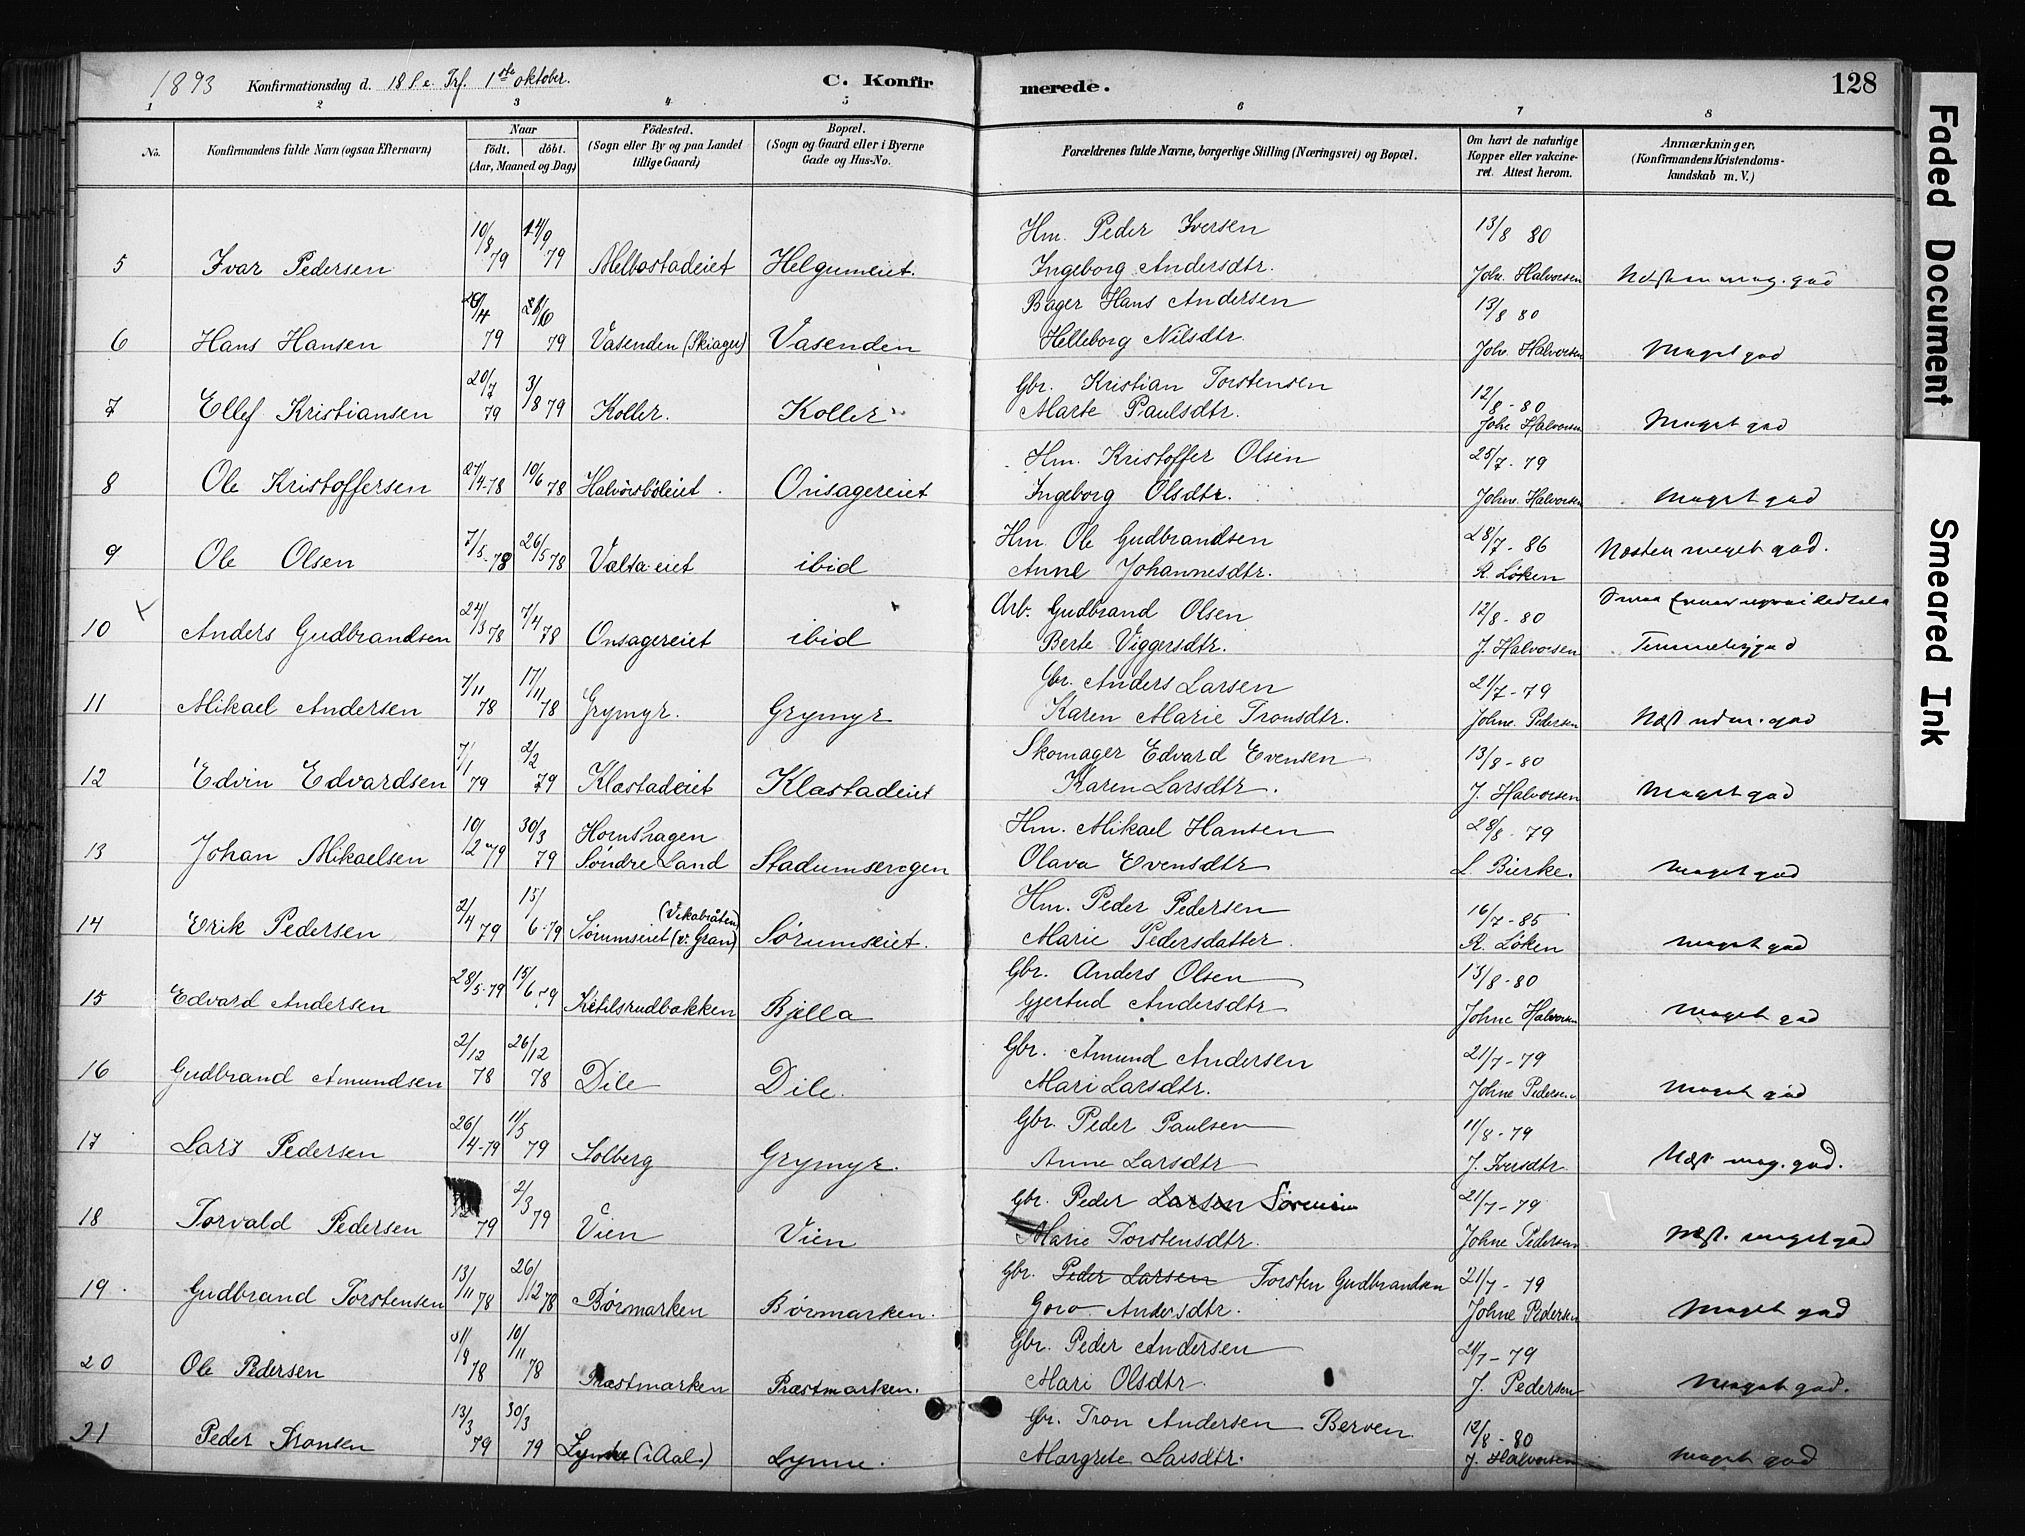 1893 Konfirmationsdag d. 18 S. e. Trf. 1ste oktober. C. Konfirmerede. 128
1 2 3 4 5 6 7 8
No. Konfirmandens fulde Navn (ogsaa Efternavn) Naar födt. döbt. (Aar, Maaned og Dag) Födested. (Sogn eller By og paa Landet tillige Gaard) Bopæl. (Sogn og Gaard eller i Byerne Gade og Hus-No. Forældrenes fulde Navne, borgerlige Stilling (Næringsvei) og Bopæl. Om havt de naturlige Kopper eller vakcineret. Attest herom. Anmærkninger, (Konfirmandens Kristendomskundskab m. V.)
10/8 14/9 Hm. Peder Iversen 13/8 80
5 Ivar Pedersen 79 79 Melbostadeiet Helgumeiet. Ingeborg Andersdtr. Joh. Halvorsen Næsten meg. god
/4 /6 Bager Hans Andersen 13/8 80
6 Hans Hansen 79 79 Vasenden (Skiager) Vasenden Helleborg Nilsdtr. Joh. Halvorsen Meget god
20/7 3/8 79 Gbr. Kristian Torstensen 12/8 - 80
7 Ellef Kristiansen 79 Koller. Koller Marte Paulsdtr. Johe Halvorsen Meget god
Hm. Kristoffer Olsen 25/7 - 79
8 Ole Kristoffersen 27/4-78 10/6 78 Halvorsböleiet. Onsagereiet Ingeborg Olsdtr. Johne Halvorsen Meget god
Hm. Ole Gudbrandsen 28/7 - 86
9 Ole Olsen 7/5-78 26/5 78 Valsta-eiet ibid Anne Johannesdtr. R. Löken Næsten meget god.
Arb. Gudbrand Olsen 12/8 - 80
10 Anders Gudbrandsen 24/3 78 7/4 78 Onsagereiet ibid Berte Viggersdtr. J. Halvorsen Temmelig god
7/11 17/11 Gbr. Anders Larsen 21/7 - 79
11 Mikael Andersen 78 78 Grymyr. Grymyr Karen Marie Tronsdtr. Johne Pedersen
7/1 2/2 Skomager Edvard Evensen 13/8 - 80
12 Edvin Edvardsen 79 79 Klæstadeiet Klæstadeiet Karen Larsdtr. J. Halvorsen Meget god
10/2 79 30/3 Hornshagen Hm. Mikael Hansen 28/8 - 79
13 Johan Mikaelsen 79 Söndre Land Stadumsengen Olava Evensdtr L Bierke. Meget god
2/4 15/ Hm. Peder Pedersen 16/7 - 85
14 Erik Pedersen 79 6-79 Sörumseiet (v. Gran) Sörumseiet. Marie Pedersdatter. R. Löken Meget god
28/5-79 15/6 79 Gbr. Anders Olsen 13/8 - 80
15 Edvard Andersen Ketilsrudbakken Bjella Gjertud Andersdtr Johne Halvorsen Meget god
2/12 26/12 Gbr. Amund Andersen 21/7 - 79
16 Gudbrand Amundsen 78 78 Dile Dile. Mari Larsdtr. Johne Pedersen Meget god
26/4-79 11/5 Gbr. Peder Paulsen 11/8 - 79
17 Lars Pedersen 79 Solberg Grymyr. Anne Larsdtr J. Iversdtr. Næst. meg. god.
2/3 Gbr. Peder Larsen Sörensen 21/7 - 79
18 Torvald Pedersen 79 79 Vien Vien Marie Torstensdtr. Johne Pedersen Næst. meget god
13/11 26/12 Gbr. Peder Larsen Torsten Gudbrandsen 21/7 - 79
19 Gudbrand Torstensen 78 78 Börmarken Börmarken. Goro Andersdtr. Johne Pedersen Meget god
10/11 Gbr. Peder Andersen 21/7 - 79
20 Ole Pedersen 78 78 Præstmarken Præstmarken. Mari Olsdtr. J. Pedersen Meget god.
13/3 30/3 Gbr. Tron Andersen Berven 12/8 - 80
21 Peder Tronsen 79 79 Lynne (i Aal) Lynne. Margrete Larsdtr. J. Halvorsen Meget god
Faded Document
Smeared Ink